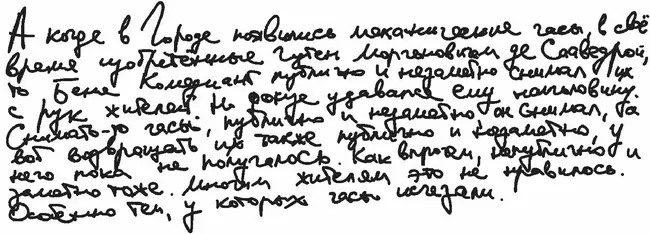 А когда в Городе появились механические часы, в своё
время изобретённые Гутен Моргеновичом де Сааведрой,
то Беня Комедиант публично и незаметно снимал их
с рук жителей. Но фокус удавался ему наполовину.
Снимать-то часы, публично и незаметно он снимал, да
вот возвращать их также публично и незаметно, у
него пока не получалось. Как впрочем, непублично и
заметно тоже. Многим жителям это не нравилось.
Особенно тем, у которых часы исчезали.